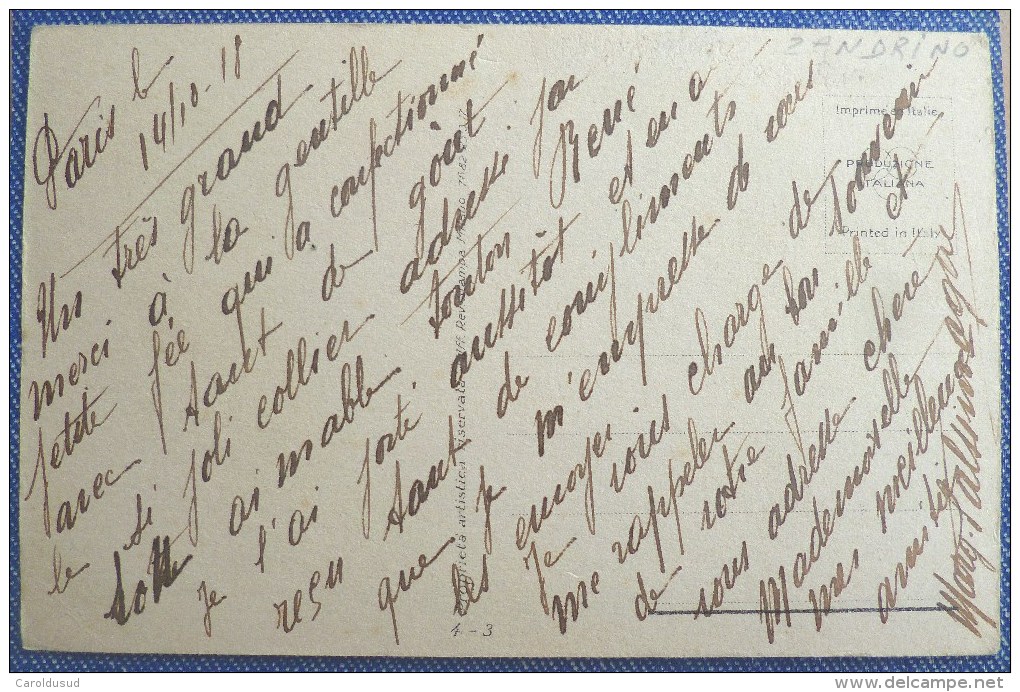 ZANDRINO
Imprimé en Italie
PRODUZIONE
ITALIANA
Printed in Italy
Paris le
14/10-18
Un très grand
merci à la gentille
petite fée qui a confectionné
avec tant de goût
le si joli collier. adressé par
ai mable tonton René
je l'ai porté aussitôt et en a
reçu tant de compliments
que je m'empresse de vous
les envoyer
Je vous charge de
me rappeler au bon souvenir
de votre famille et
vous adresse chère
Mademoiselle
mes meilleures
amitiés
Marg.
Proprietà artistica riservata
4-3
Caroldusud
www.delcampe.net